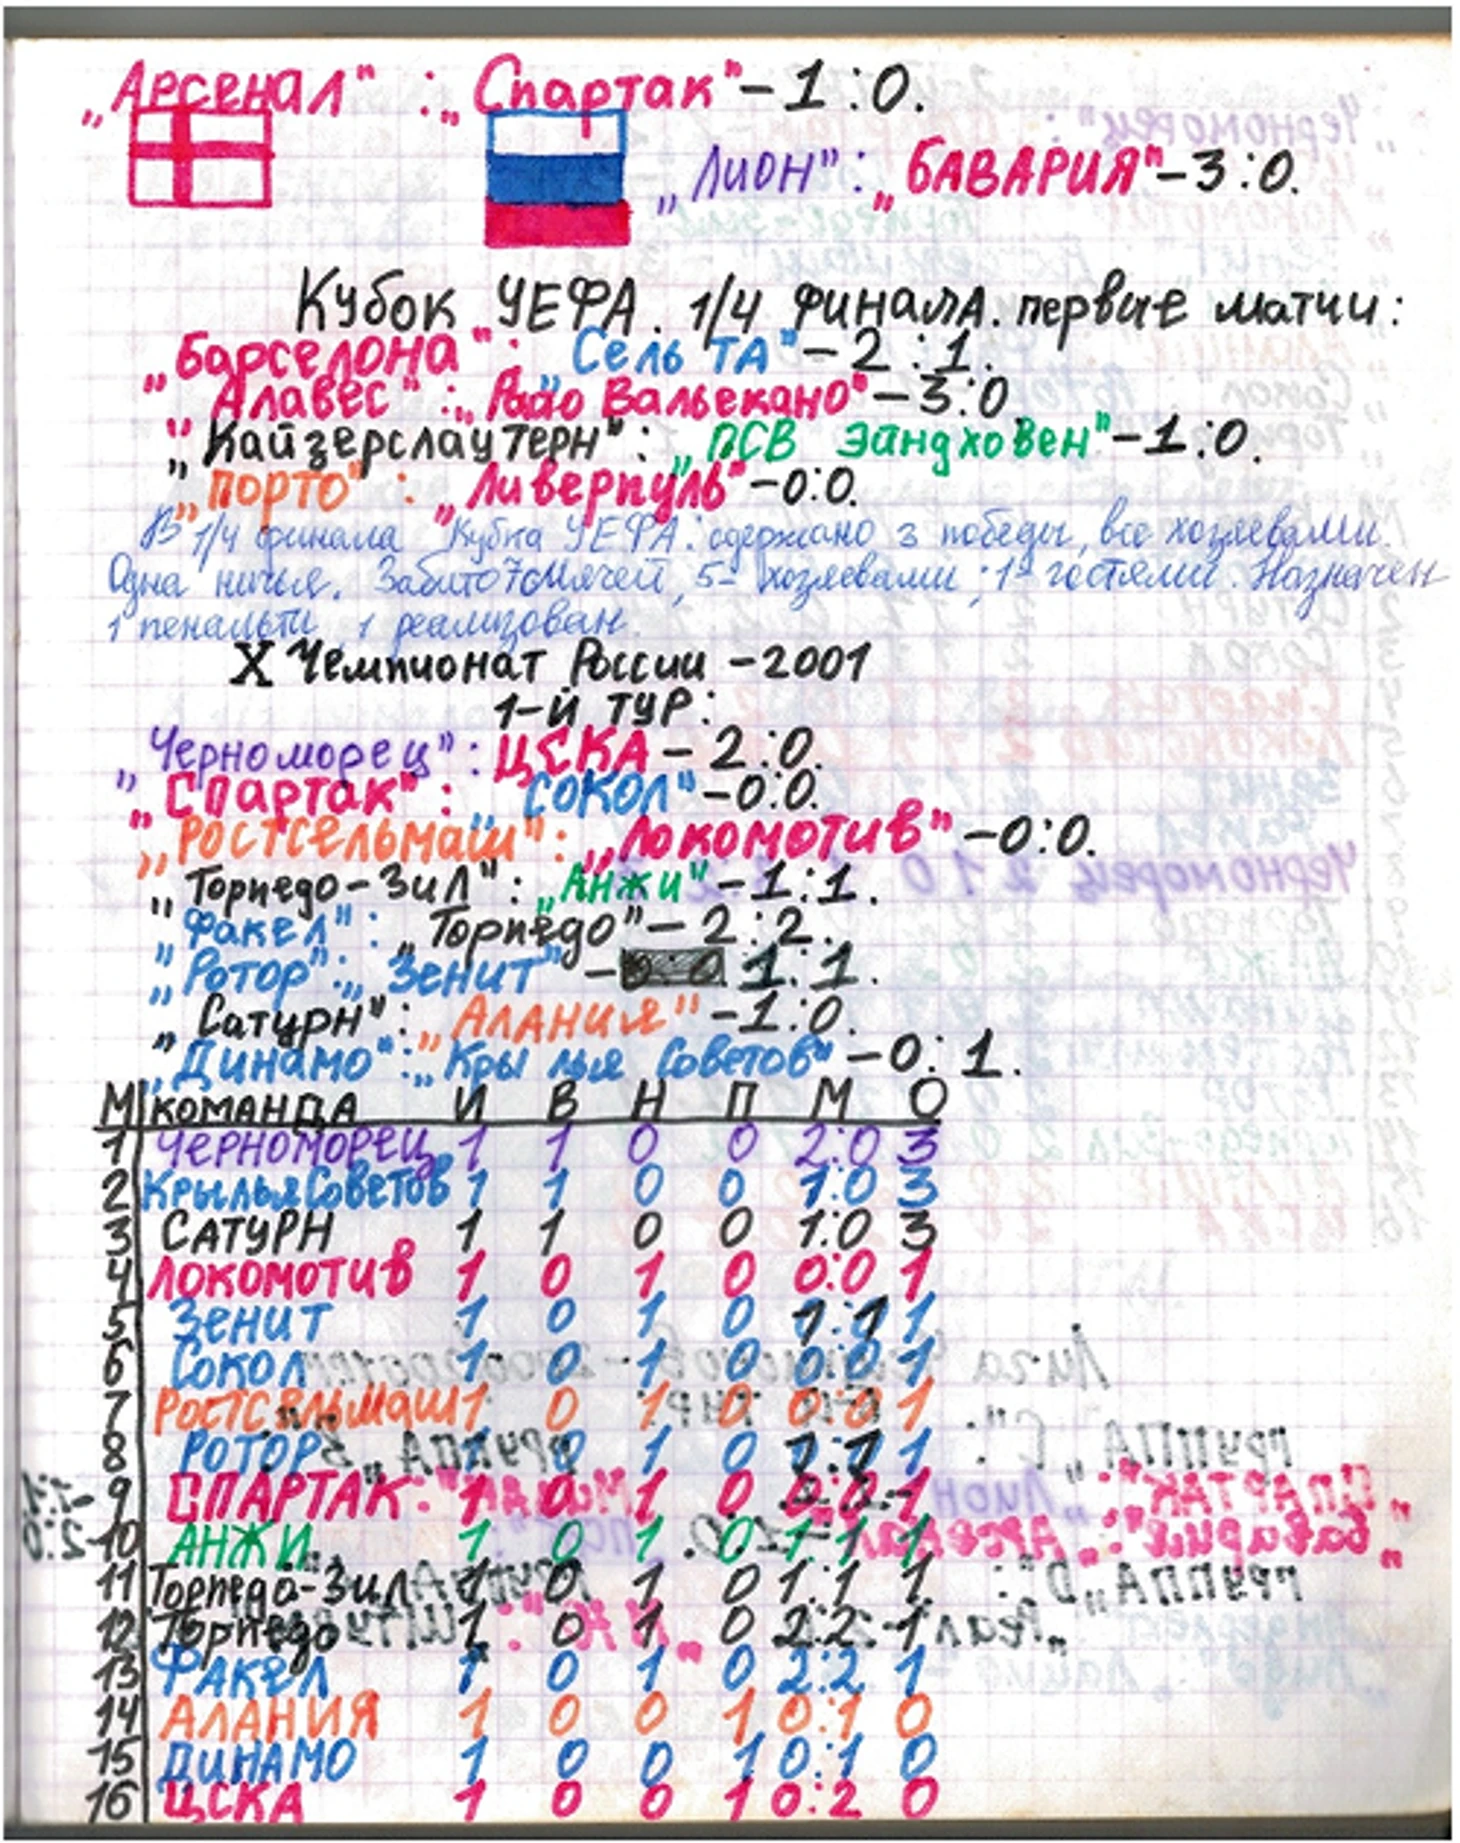 „Арсенал“ : „Спартак“ – 1:0.
„Лион“ : „БАВАРИЯ“ – 3:0.
Кубок УЕФА. 1/4 финала. первые матчи:
„Барселона“ : „Сельта“ – 2:1.
„Алавес“ : „Райо Вальекано“ – 3:0
„Кайзерслаутерн“ : „ПСВ Эйндховен“ – 1:0.
„Порто“ : „Ливерпуль“ – 0:0.
В 1/4 финала Кубка УЕФА: одержано 3 победы, все хозяевами.
Одна ничья. Забито 7 мячей, 5– хозяевами; 1– гостями. Назначен
1 пенальти, 1 реализован.
X Чемпионат России – 2001
1-й тур:
„Черноморец“ : ЦСКА – 2:0.
„Спартак“ : „Сокол“ – 0:0.
„Ростсельмаш“ : „Локомотив“ – 0:0.
„Торпедо-Зил“ : „Анжи“ – 1:1.
„Факел“ : „Торпедо“ – 2:2.
„Ротор“ : „Зенит“ – 1:1.
„Сатурн“ : „Алания“ – 1:0.
„Динамо“ : „Крылья Советов“ – 0:1.
М КОМАНДА И В Н П М О
1 Черноморец 1 1 0 0 2:0 3
2 Крылья Советов 1 1 0 0 1:0 3
3 Сатурн 1 1 0 0 1:0 3
4 Локомотив 1 0 1 0 0:0 1
5 Зенит 1 0 1 0 1:1 1
6 Сокол 1 0 1 0 0:0 1
7 Ростсельмаш 1 0 1 0 0:0 1
8 Ротор 1 0 1 0 1:1 1
9 СПАРТАК 1 0 1 0 0:0 1
10 АНЖИ 1 0 1 0 1:1 1
11 Торпедо-Зил 1 0 1 0 1:1 1
12 Торпедо 1 0 1 0 2:2 1
13 Факел 1 0 1 0 2:2 1
14 АЛАНИЯ 1 0 0 1 0:1 0
15 ДИНАМО 1 0 0 1 0:1 0
16 ЦСКА 1 0 0 1 0:2 0